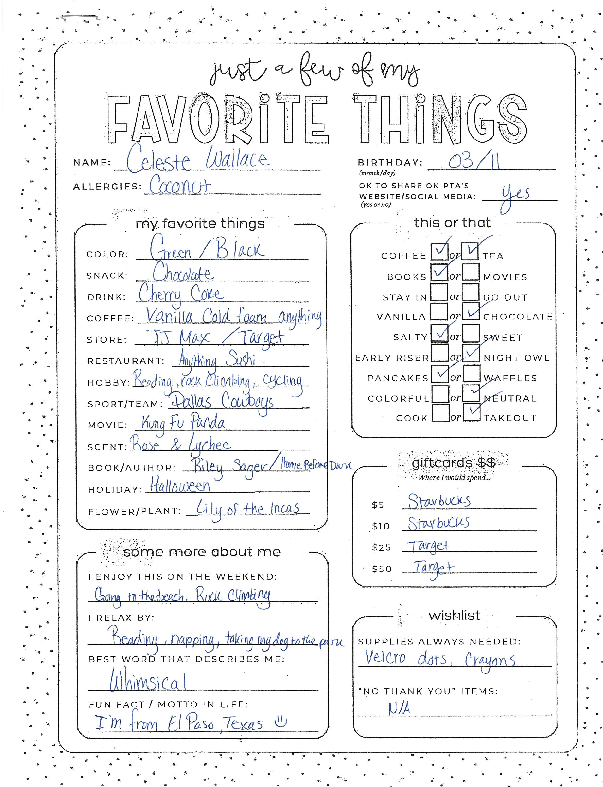 just a few of my
FAVORITE THINGS
NAME: Celeste Wallace
ALLERGIES: Coconut
BIRTHDAY: 03/11
(month/day)
OK TO SHARE ON PTA'S
WEBSITE/SOCIAL MEDIA: yes
(yes or no)
my favorite things
COLOR: Green / Black
SNACK: Chocolate
DRINK: Cherry Coke
COFFEE: Vanilla Cold foam anything
STORE: TJ Max / Target
RESTAURANT: Anything Sushi
HOBBY: Reading, rock climbing, cycling
SPORT/TEAM: Dallas Cowboys
MOVIE: Kung Fu Panda
SCENT: Rose & lychee
BOOK/AUTHOR: Riley Sager / Home Before Dark
HOLIDAY: Halloween
FLOWER/PLANT: Lily of the Incas
this or that
COFFEE or TEA
BOOKS or MOVIES
STAY IN or GO OUT
VANILLA or CHOCOLATE
SALTY or SWEET
EARLY RISER or NIGHT OWL
PANCAKES or WAFFLES
COLORFUL or NEUTRAL
COOK or TAKEOUT
giftcards $$
Where I would spend...
$5 Starbucks
$10 Starbucks
$25 Target
$50 Target
some more about me
I ENJOY THIS ON THE WEEKEND:
Going to the beach, Rock Climbing
I RELAX BY:
Reading, napping, taking my dog to the park
BEST WORD THAT DESCRIBES ME:
Whimsical
FUN FACT / MOTTO IN LIFE:
I'm from El Paso, Texas
wishlist
SUPPLIES ALWAYS NEEDED:
Velcro dots, Crayons
"NO THANK YOU" ITEMS:
N/A